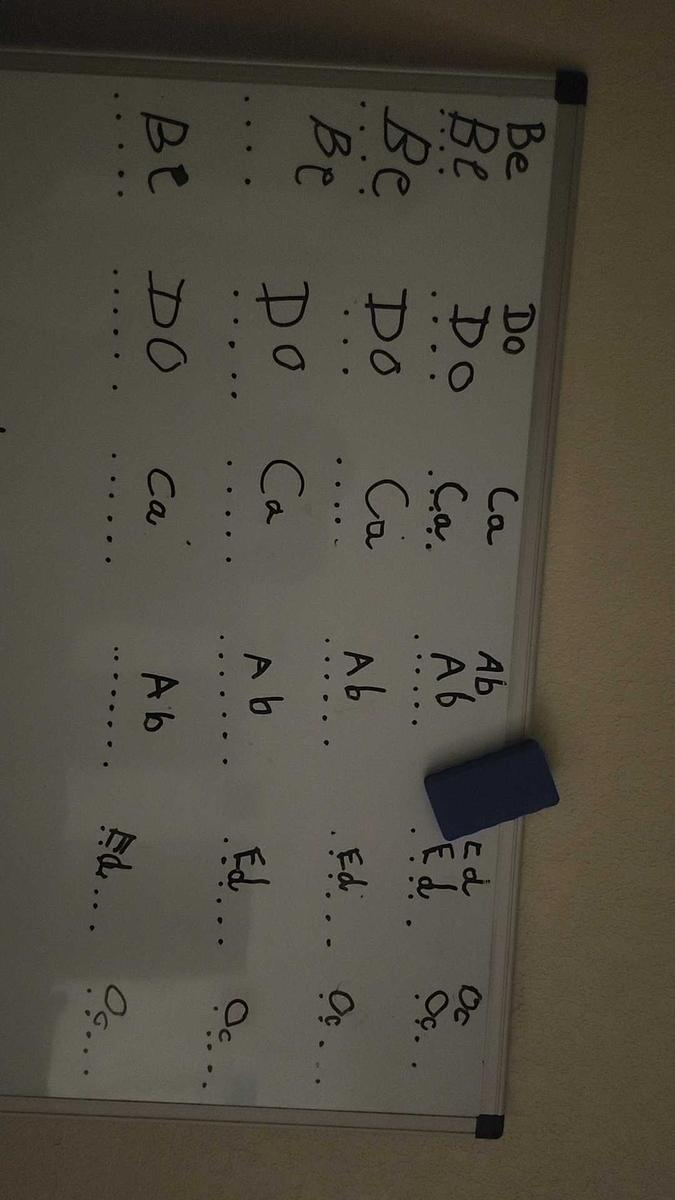 Be Do Ca Ab Ed Oc
Be Do Ca Ab Ed Oc
Be Do Ca Ab Ed Oc
Be Do Ca Ab Ed Oc
Be Do Ca Ab Ed Oc